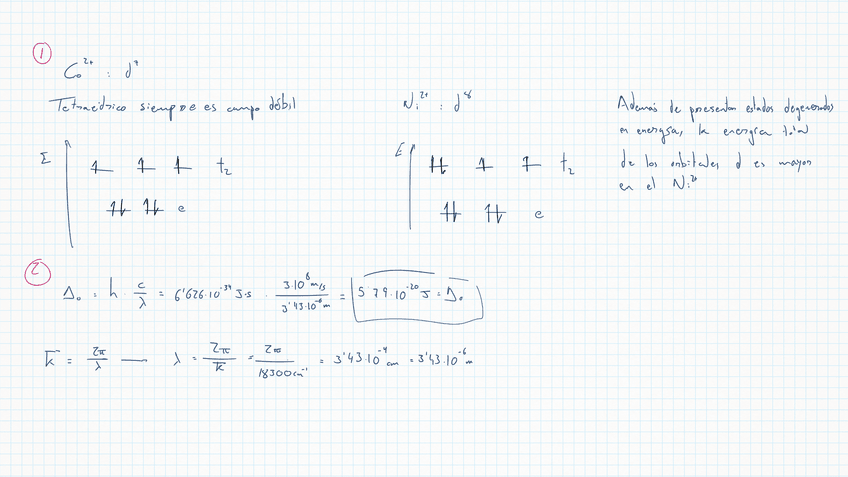 1
Co²⁺ : d⁷
Tetraédrico siempre es campo débil
E
t₂
e
Ni²⁺ : d⁸
E
t₂
e
Además de presentar estados degenerados
en energía, la energía total
de los orbitales d es mayor
en el Ni²⁺
2
Δₒ = h · c/λ = 6'626·10⁻³⁴ J·s · 3·10⁸ m/s / 3'43·10⁻⁶ m = 5'79·10⁻²⁰ J = Δₒ
k̅ = 2π/λ — λ = 2π/k̅ = 2π/18300 cm⁻¹ = 3'43·10⁻⁴ cm = 3'43·10⁻⁶ m